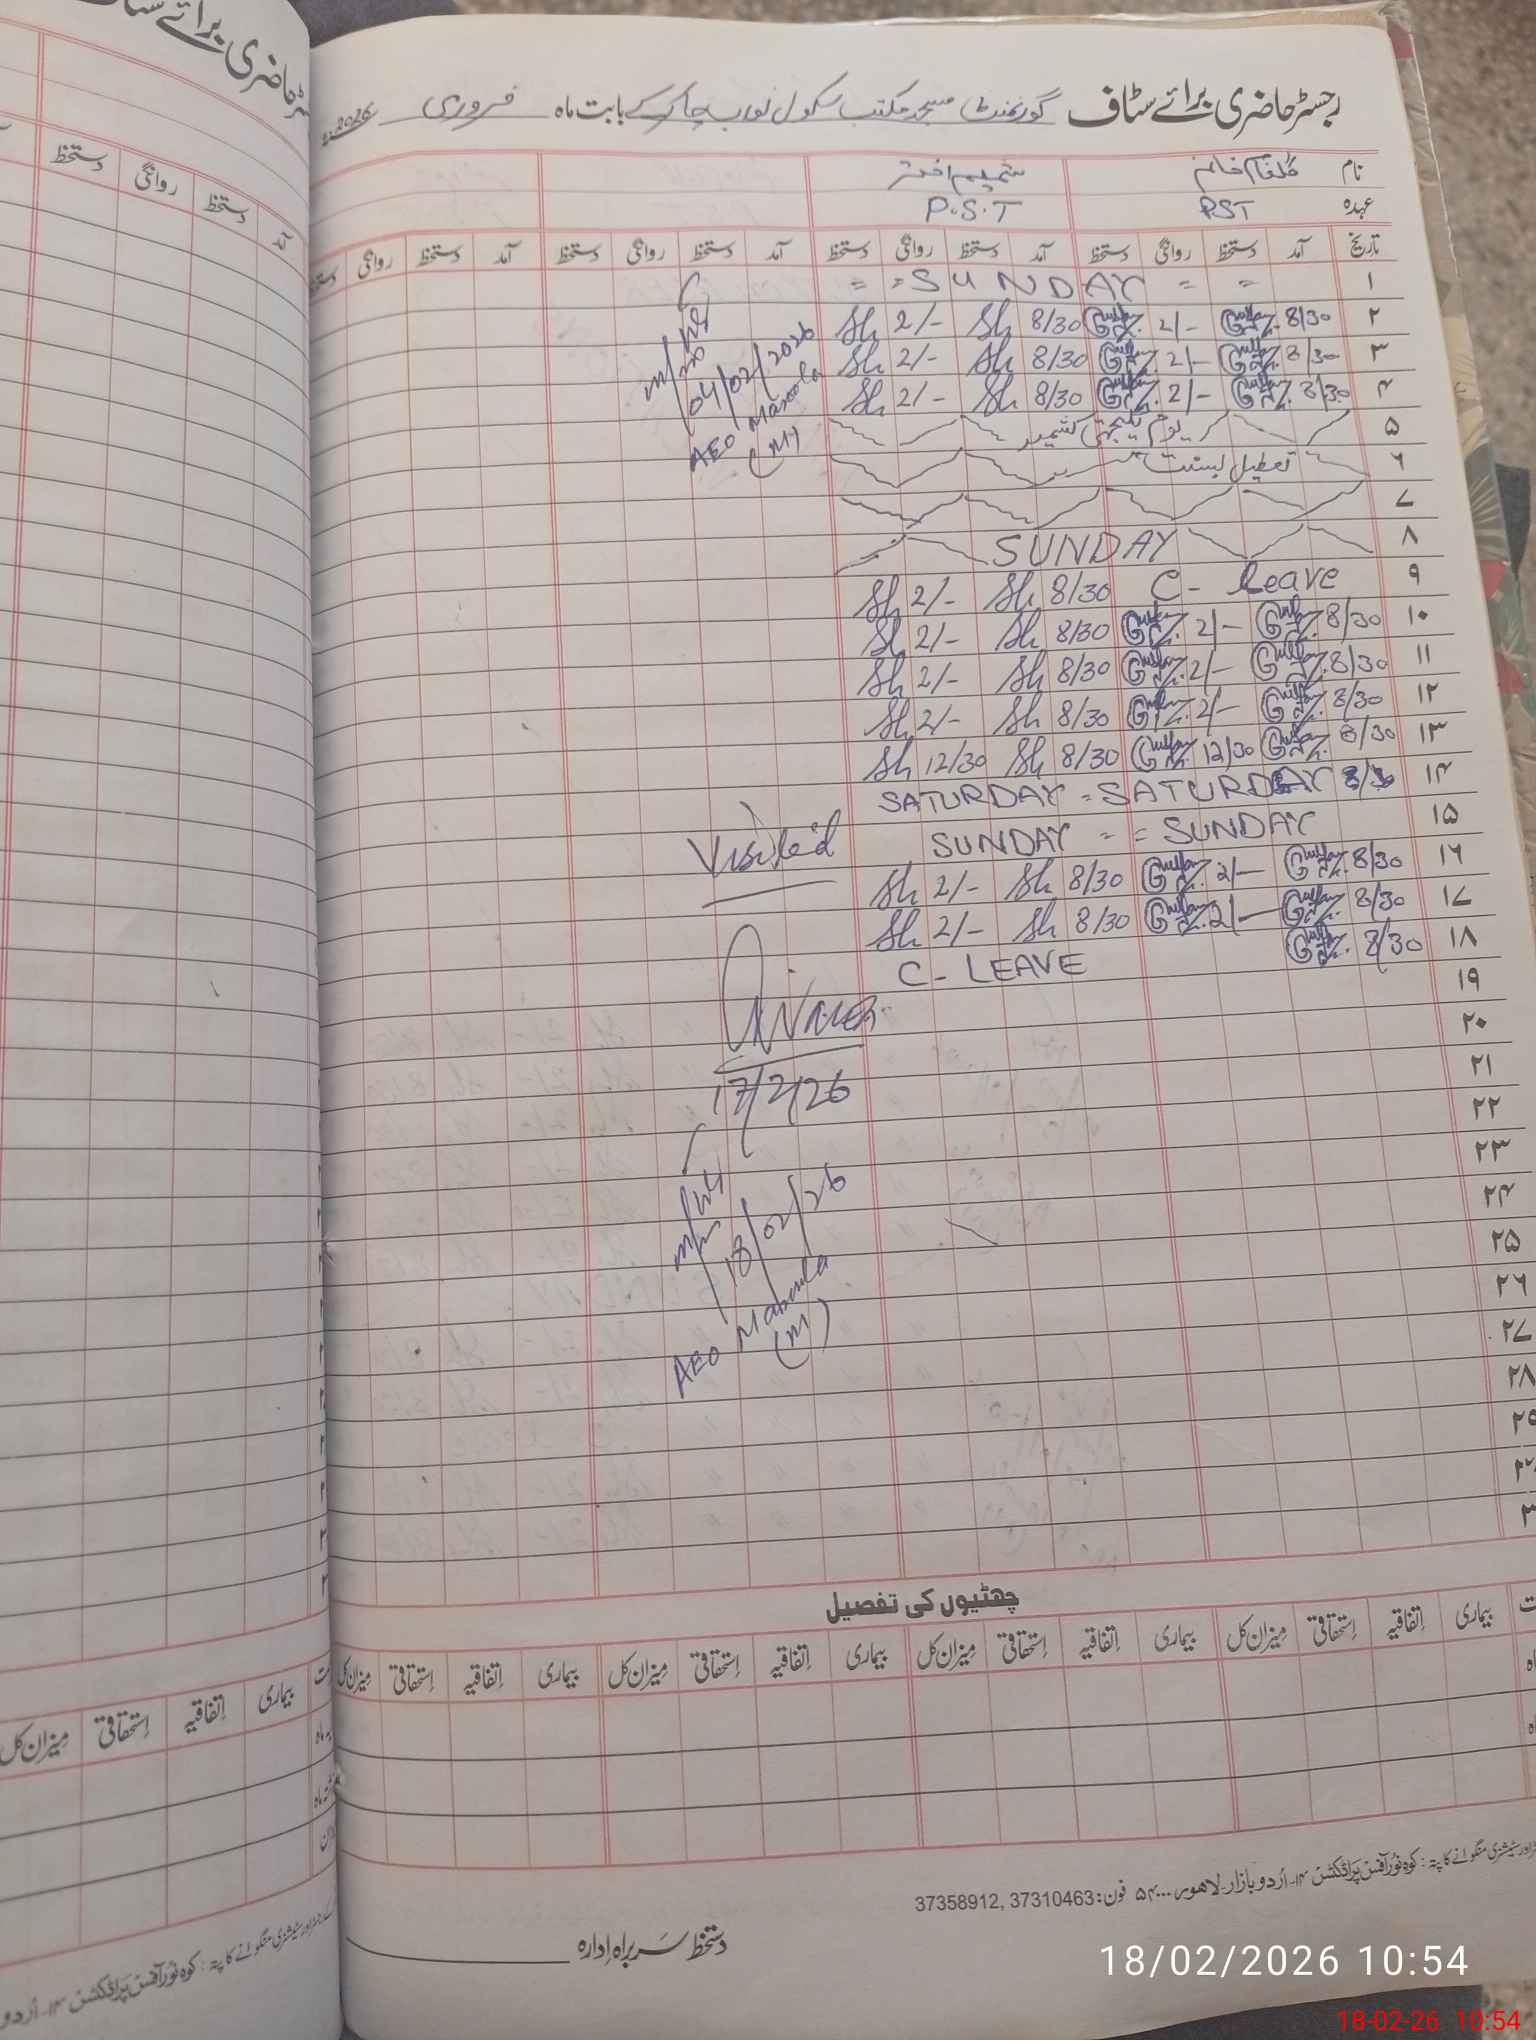 رجسٹر حاضری برائے سٹاف گورنمنٹ مسجد مکتب سکول نواب چاکر کے بابت ماہ فروری 2026ء
نام گلفام خانم شمیم اختر
عہدہ PST P.S.T
تاریخ آمد دستخط روانگی دستخط آمد دستخط روانگی دستخط آمد دستخط روانگی دستخط آمد دستخط روانگی دستخط
۱ = = SUNDAY = =
۲ 8/30 2/- 8/30 Sh 2/- Sh
۳ 8/30 2/- 8/30 Sh 2/- Sh
۴ 8/30 2/- 8/30 Sh 2/- Sh
04/02/2026
AEO Masoola
(M)
۵ یوم یکجہتی کشمیر
۶ تعطیل بسنت
۷
۸ SUNDAY
۹ C- Leave 8/30 Sh 2/- Sh
۱۰ 8/30 2/- 8/30 Sh 2/- Sh
۱۱ 8/30 2/- 8/30 Sh 2/- Sh
۱۲ 8/30 2/- 8/30 Sh 2/- Sh
۱۳ 8/30 12/30 8/30 Sh 12/30 Sh
۱۴ SATURDAY = SATURDAY
۱۵ SUNDAY = = SUNDAY
۱۶ 8/30 2/- 8/30 Sh 2/- Sh
۱۷ 8/30 2/- 8/30 Sh 2/- Sh
۱۸ 8/30 C- LEAVE
Visited
17/2/26
18/02/26
AEO Masoola
(M)
۱۹
۲۰
۲۱
۲۲
۲۳
۲۴
۲۵
۲۶
۲۷
۲۸
۲۹
چھٹیوں کی تفصیل
بیماری اتفاقیہ استحقاقی میزان کل بیماری اتفاقیہ استحقاقی میزان کل بیماری اتفاقیہ استحقاقی میزان کل بیماری اتفاقیہ استحقاقی میزان کل
سٹیشنری منگوانے کا پتہ : کوہ نور آفس پراڈکشن ۱۴- اُردو بازار۔ لاہور۔ ۵۴۰۰۰ فون: 37310463 ,37358912
دستخط سربراہ ادارہ
18/02/2026 10:54
18-02-26 10:54
دستخط روانگی دستخط آمد
بیماری اتفاقیہ استحقاقی میزان کل